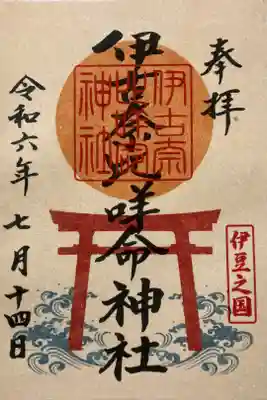 奉拝
伊豆之国
伊古奈比咩命神社
伊古奈
神社
令和六年七月十四日